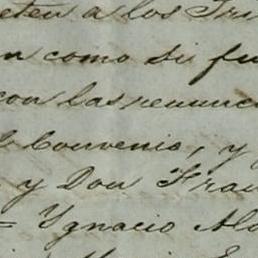 eten a los Tri
n como si fu
con las renunc
l Convenio, y
y Don Fran
= Ygnacio Alo